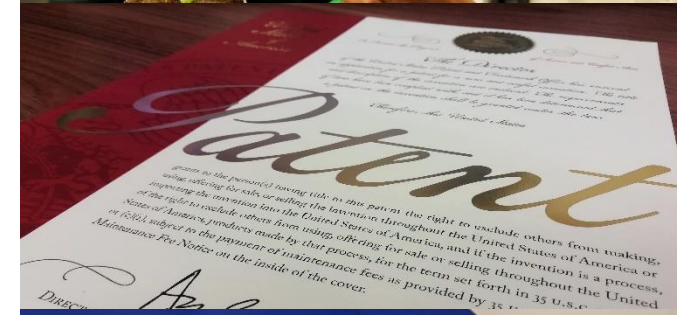 The Director
of the United States Patent and Trademark Office has received
an application for a patent for a new and useful invention. The title
and description of the invention are enclosed. The requirements
of law have been complied with, and it has been determined that
a patent on the invention shall be granted under the law.
Therefore, this United States
Patent
grants to the person(s) having title to this patent the right to exclude others from making,
using, offering for sale or selling the invention throughout the United States of America or
importing the invention into the United States of America, and if the invention is a process,
of the right to exclude others from using, offering for sale or selling throughout the United
States of America, products made by that process, for the term set forth in 35 U.S.C.
or (c)(1), subject to the payment of maintenance fees as provided by 35 U
Maintenance Fee Notice on the inside of the cover.
Direc